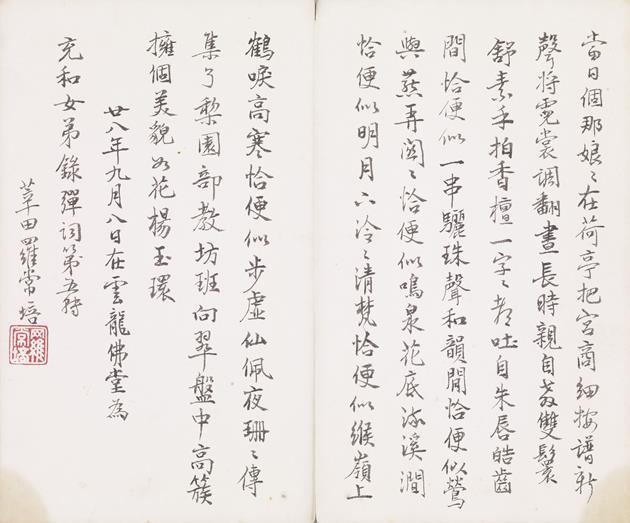 當日個那娘〻在荷亭把宮商細按譜新
聲將霓裳調翻晝長時親自教雙鬟
舒素手拍香檀一字〻都吐自朱唇皓齒
間恰便似一串驪珠聲和韻閒恰便似鶯
與燕弄關〻恰便似鳴泉花底流溪澗
恰便似明月下泠〻清梵恰便似緱嶺上
鶴唳高寒恰便似步虛仙佩夜珊〻傳
集了梨園部教坊班向翠盤中高簇
擁個美貌如花楊玉環
廿八年九月八日在雲龍佛堂為
充和女弟錄彈詞第五轉
莘田羅常培